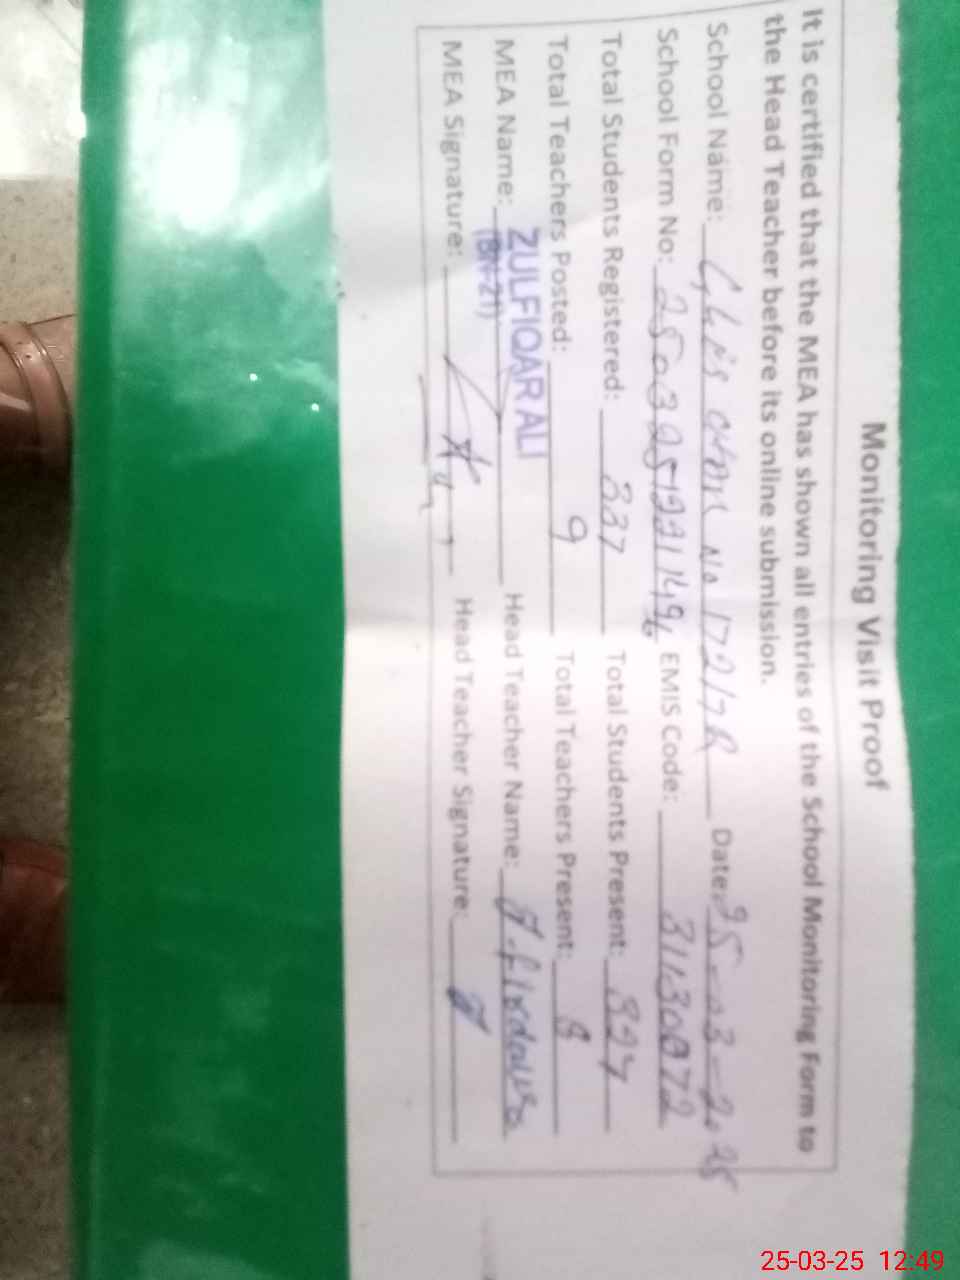 Monitoring Visit Proof
It is certified that the MEA has shown all entries of the School Monitoring Form to
the Head Teacher before its online submission.
School Name: No 172/7R Date: 25-03-2025
School Form No: EMIS Code: 31130072
Total Students Registered: 337 Total Students Present:
Total Teachers Posted: 9 Total Teachers Present: 8
MEA Name: ZULFIQAR ALI Head Teacher Name:
(BN-21)
MEA Signature: Head Teacher Signature:
25-03-25 12:49